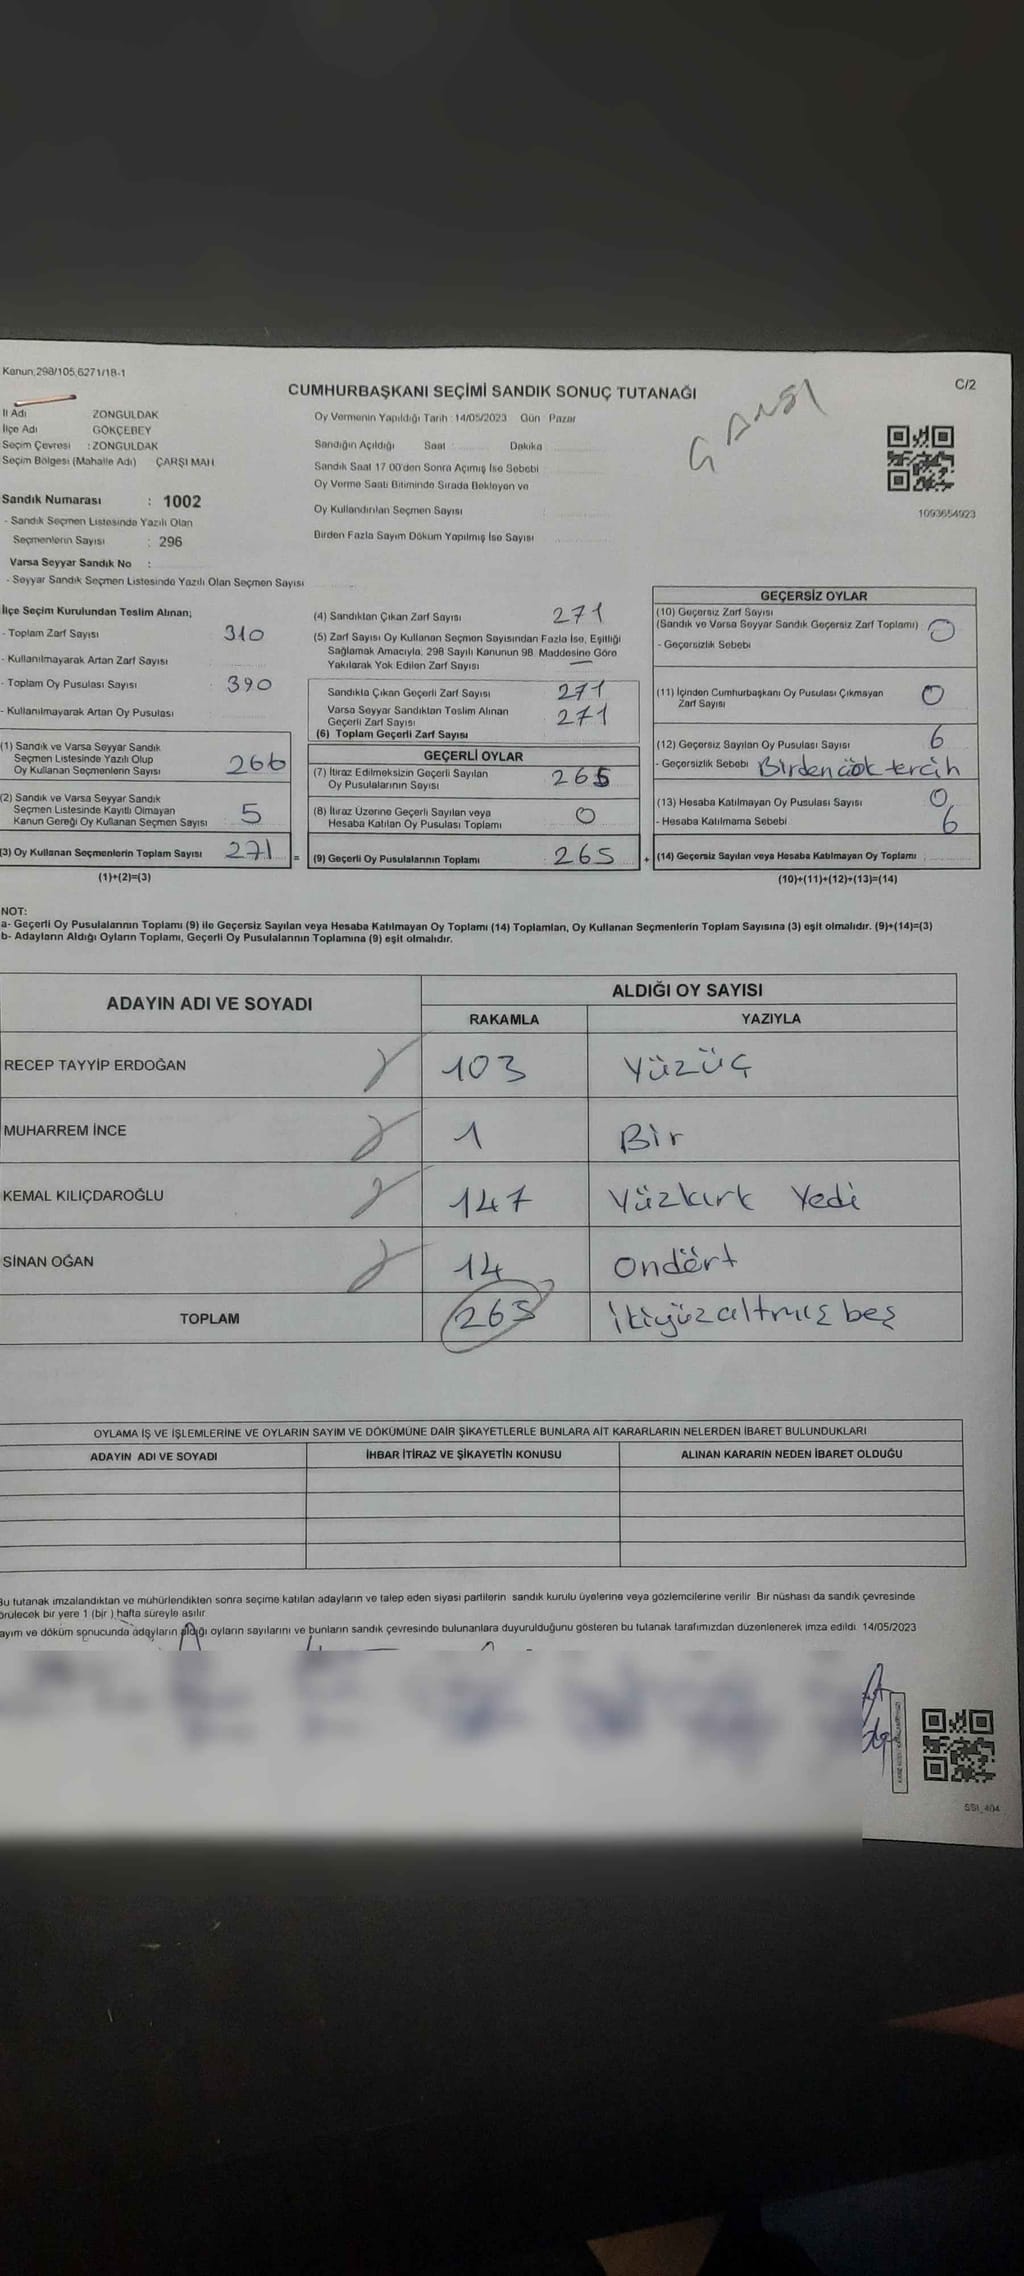 Kanun,298/105,6271/18-1
CUMHURBAŞKANI SEÇİMİ SANDIK SONUÇ TUTANAĞI
C/2
ÇARŞI
İl Adı ZONGULDAK
İlçe Adı GÖKÇEBEY
Seçim Çevresi : ZONGULDAK
Seçim Bölgesi (Mahalle Adı) ÇARŞI MAH
Sandık Numarası : 1002
- Sandık Seçmen Listesinde Yazılı Olan
Seçmenlerin Sayısı : 296
Varsa Seyyar Sandık No :
- Seyyar Sandık Seçmen Listesinde Yazılı Olan Seçmen Sayısı
Oy Vermenin Yapıldığı Tarih : 14/05/2023 Gün : Pazar
Sandığın Açıldığı Saat : Dakika :
Sandık Saat 17.00'den Sonra Açımış İse Sebebi
Oy Verme Saati Bitiminde Sırada Bekleyen ve
Oy Kullandırılan Seçmen Sayısı
Birden Fazla Sayım Döküm Yapılmış İse Sayısı
1093654923
İlçe Seçim Kurulundan Teslim Alınan;
- Toplam Zarf Sayısı 310
- Kullanılmayarak Artan Zarf Sayısı
- Toplam Oy Pusulası Sayısı 390
- Kullanılmayarak Artan Oy Pusulası
(1) Sandık ve Varsa Seyyar Sandık
Seçmen Listesinde Yazılı Olup
Oy Kullanan Seçmenlerin Sayısı 266
(2) Sandık ve Varsa Seyyar Sandık
Seçmen Listesinde Kayıtlı Olmayan
Kanun Gereği Oy Kullanan Seçmen Sayısı 5
(3) Oy Kullanan Seçmenlerin Toplam Sayısı 271 =
(1)+(2)=(3)
(4) Sandıktan Çıkan Zarf Sayısı 271
(5) Zarf Sayısı Oy Kullanan Seçmen Sayısından Fazla İse, Eşitliği
Sağlamak Amacıyla, 298 Sayılı Kanunun 98. Maddesine Göre
Yakılarak Yok Edilen Zarf Sayısı —
Sandıkla Çıkan Geçerli Zarf Sayısı 271
Varsa Seyyar Sandıktan Teslim Alınan
Geçerli Zarf Sayısı 271
(6) Toplam Geçerli Zarf Sayısı
GEÇERLİ OYLAR
(7) İtiraz Edilmeksizin Geçerli Sayılan
Oy Pusulalarının Sayısı 265
(8) İtiraz Üzerine Geçerli Sayılan veya
Hesaba Katılan Oy Pusulası Toplamı 0
(9) Geçerli Oy Pusulalarının Toplamı 265 +
GEÇERSİZ OYLAR
(10) Geçersiz Zarf Sayısı
(Sandık ve Varsa Seyyar Sandık Geçersiz Zarf Toplamı) 0
- Geçersizlik Sebebi
(11) İçinden Cumhurbaşkanı Oy Pusulası Çıkmayan
Zarf Sayısı 0
(12) Geçersiz Sayılan Oy Pusulası Sayısı 6
- Geçersizlik Sebebi Birden çok tercih
(13) Hesaba Katılmayan Oy Pusulası Sayısı 0
- Hesaba Katılmama Sebebi 6
(14) Geçersiz Sayılan veya Hesaba Katılmayan Oy Toplamı
(10)+(11)+(12)+(13)=(14)
NOT:
a- Geçerli Oy Pusulalarının Toplamı (9) ile Geçersiz Sayılan veya Hesaba Katılmayan Oy Toplamı (14) Toplamları, Oy Kullanan Seçmenlerin Toplam Sayısına (3) eşit olmalıdır. (9)+(14)=(3)
b- Adayların Aldığı Oyların Toplamı, Geçerli Oy Pusulalarının Toplamına (9) eşit olmalıdır.
ADAYIN ADI VE SOYADI ALDIĞI OY SAYISI
RAKAMLA YAZIYLA
RECEP TAYYİP ERDOĞAN 103 Yüzüç
MUHARREM İNCE 1 Bir
KEMAL KILIÇDAROĞLU 147 Yüzkırk Yedi
SİNAN OĞAN 14 Ondört
TOPLAM 265 İkiyüzaltmış beş
OYLAMA İŞ VE İŞLEMLERİNE VE OYLARIN SAYIM VE DÖKÜMÜNE DAİR ŞİKAYETLERLE BUNLARA AİT KARARLARIN NELERDEN İBARET BULUNDUKLARI
ADAYIN ADI VE SOYADI İHBAR İTİRAZ VE ŞİKAYETİN KONUSU ALINAN KARARIN NEDEN İBARET OLDUĞU
Bu tutanak imzalandıktan ve mühürlendikten sonra seçime katılan adayların ve talep eden siyasi partilerin sandık kurulu üyelerine veya gözlemcilerine verilir. Bir nüshası da sandık çevresinde
örülecek bir yere 1 (bir ) hafta süreyle asılır.
ayım ve döküm sonucunda adayların aldığı oyların sayılarını ve bunların sandık çevresinde bulunanlara duyurulduğunu gösteren bu tutanak tarafımızdan düzenlenerek imza edildi. 14/05/2023
SSI_404